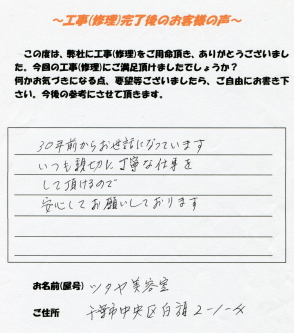 ～工事(修理)完了後のお客様の声～
この度は、弊社に工事(修理)をご用命頂き、ありがとうございまし
た。今回の工事(修理)にご満足頂けましたでしょうか？
何かお気づきになる点、要望等ございましたら、ご自由にお書き下
さい。今後の参考にさせて頂きます。
30年前からお世話になっています
いつも親切に丁寧な仕事を
して頂けるので
安心してお願いしております
お名前(屋号) ツタヤ美容室
ご住所 千葉市中央区白旗2-1-4